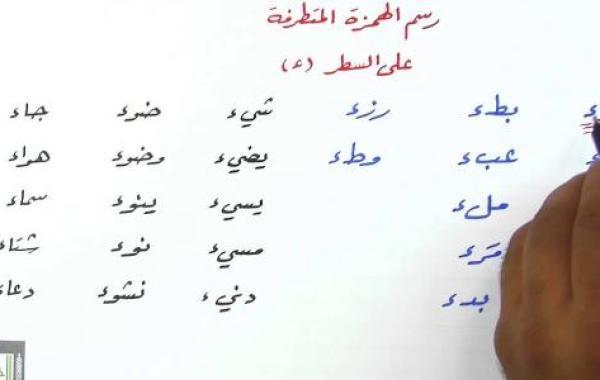 رسم الهمزة المتطرفة
على السطر (ء)
بطء رزء شيء ضوء جاء
عبء وطء يضيء وضوء هواء
ملء يسيء ينوء سماء
مرء مسيء نوء شتاء
بدء دنيء نشوء دعاء